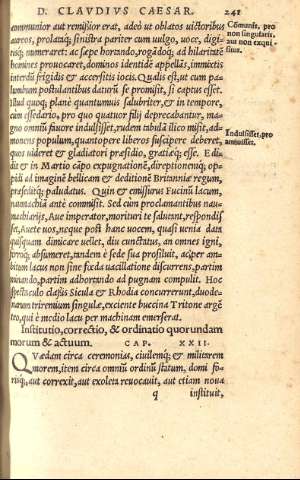 D. CLAVDIVS CAESAR. 241
communior aut remissior erat, adeò ut oblatos uictoribus
aureos, prolataq; sinistra pariter cum uulgo, uoce, digi-
tisq; numeraret: ac sæpe hortando, rogãdoq; ad hilaritatẽ
homines prouocaret, dominos identidẽ appellãs, immixtis
interdũ frigidis & accersitis iocis. Qualis est, ut cum pa-
lumbum postulantibus daturũ se promisit, si captus esset.
Illud quoq; planè quantumuis salubriter, & in tempore,
cùm essedario, pro quo quatuor filij deprecabantur, ma-
gno omniũ fauore indulsisset rudem, tabulã illico misit, ad-
monens populum, quantopere liberos suscipere deberet,
quos uideret & gladiatori præsidio, gratiæq; esse. Edi-
dit & in Martio cãpo expugnationẽ, direptionemq́; op-
pidi ad imaginẽ bellicam & deditionẽ Britanniæ regum,
præseditq; paludatus. Quin & emissurus Fucinũ lacum,
naumachiã antè commisit. Sed cùm proclamantibus nau-
machiarijs, Aue imperator, morituri te salutant, respondis-
set, Auete uos, neque post hanc uocem, quasi uenia data
quisquam dimicare uellet, diu cunctatus, an omnes igni,
ferroq; absumeret, tandem è sede sua prosiluit, ac per am-
bitum lacus non sine fœda uacillatione discurrens, partim
minando, partim adhortando ad pugnam compulit. Hoc
spectaculo classis Sicula & Rhodia concurrerunt, duode-
narum triremium singulæ, exciente buccina Tritone argẽ
teo, qui è medio lacu per machinam emerserat.
Institutio, correctio, & ordinatio quorundam
morum & actuum. CAP. XXII.
Quædam circa ceremonias, ciuilemq; & militarem
morem, item circa omniũ ordinũ statum, domi fo-
risq;, aut correxit, aut exoleta reuocauit, aut etiam noua
q instituit,
Cõmunis, pro
non singularis,
aut non exqui-
situs.
Indulsisset, pro
annuisset.